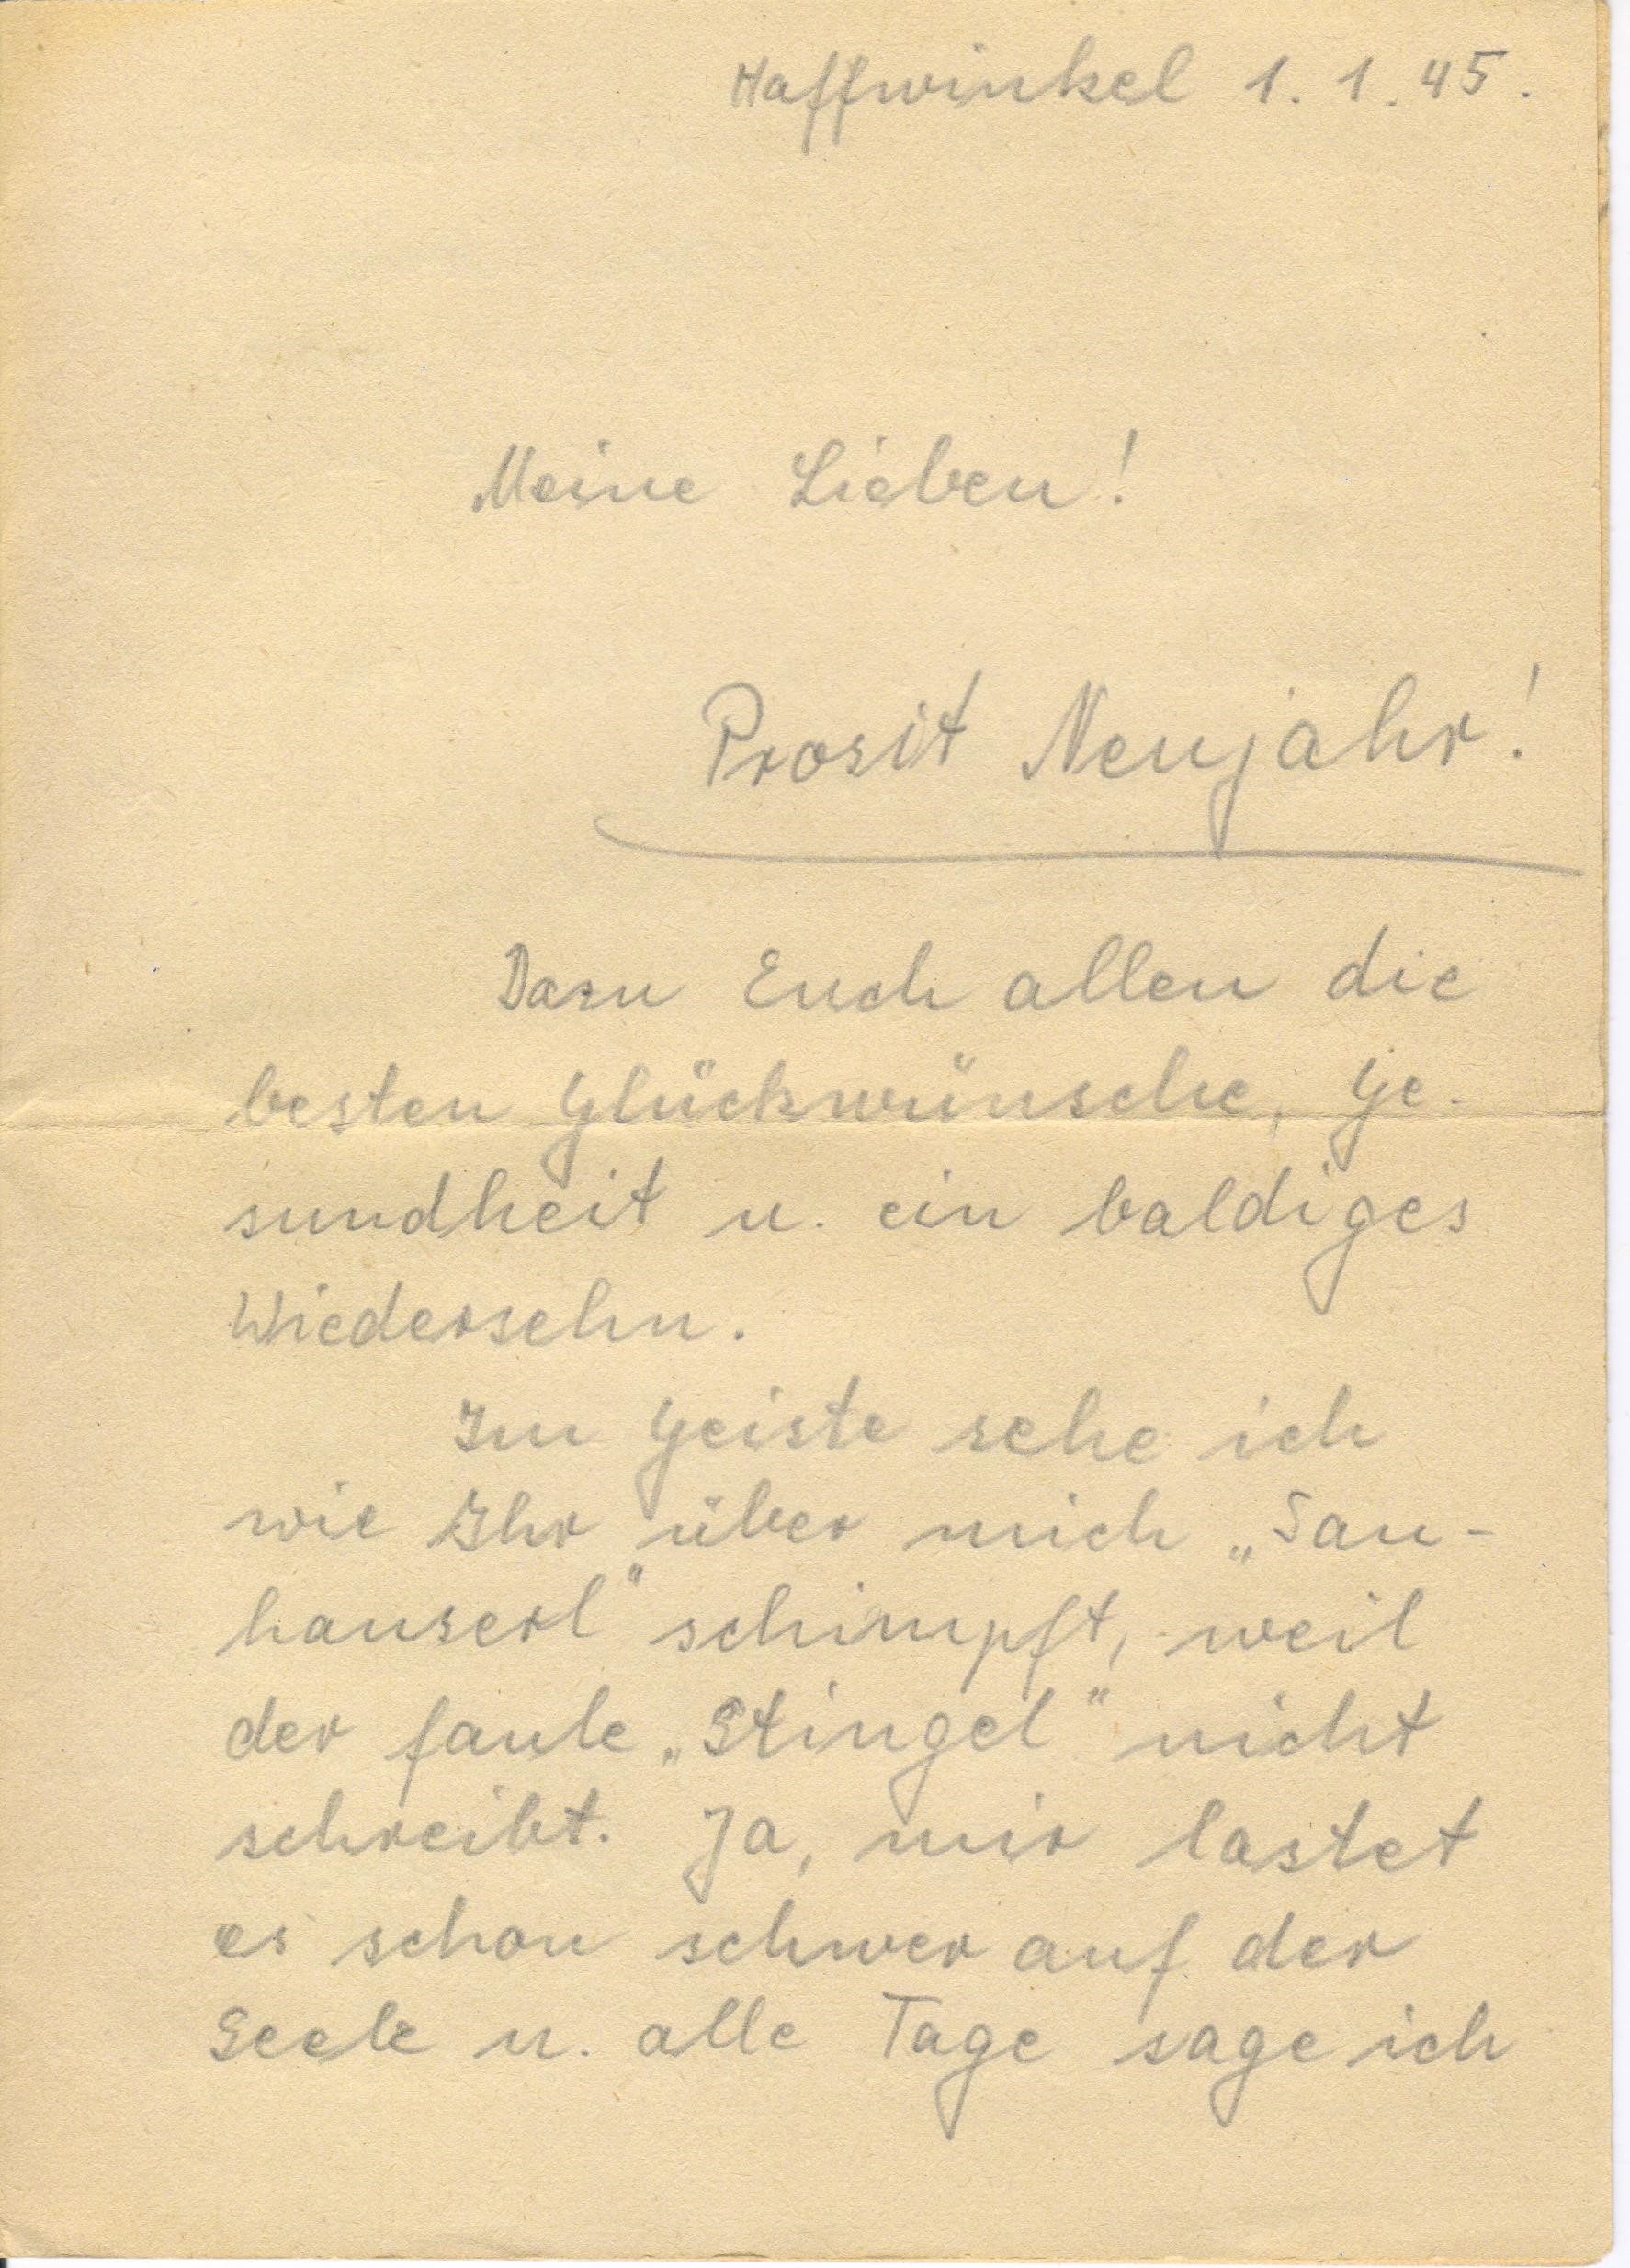 Haffwinkel 1. 1. 45.
Meine Lieben!
Prosit Neujahr!
Dazu Euch allen die
besten Glückwünsche, Ge-
sundheit u. ein baldiges
Wiedersehn.
Im Geiste sehe ich
wie Ihr über mich „Sau-
hauserl" schimpft, weil
der faule „Stingel" nicht
schreibt. Ja, mir lastet
es schon schwer auf der
Seele u. alle Tage sage ich